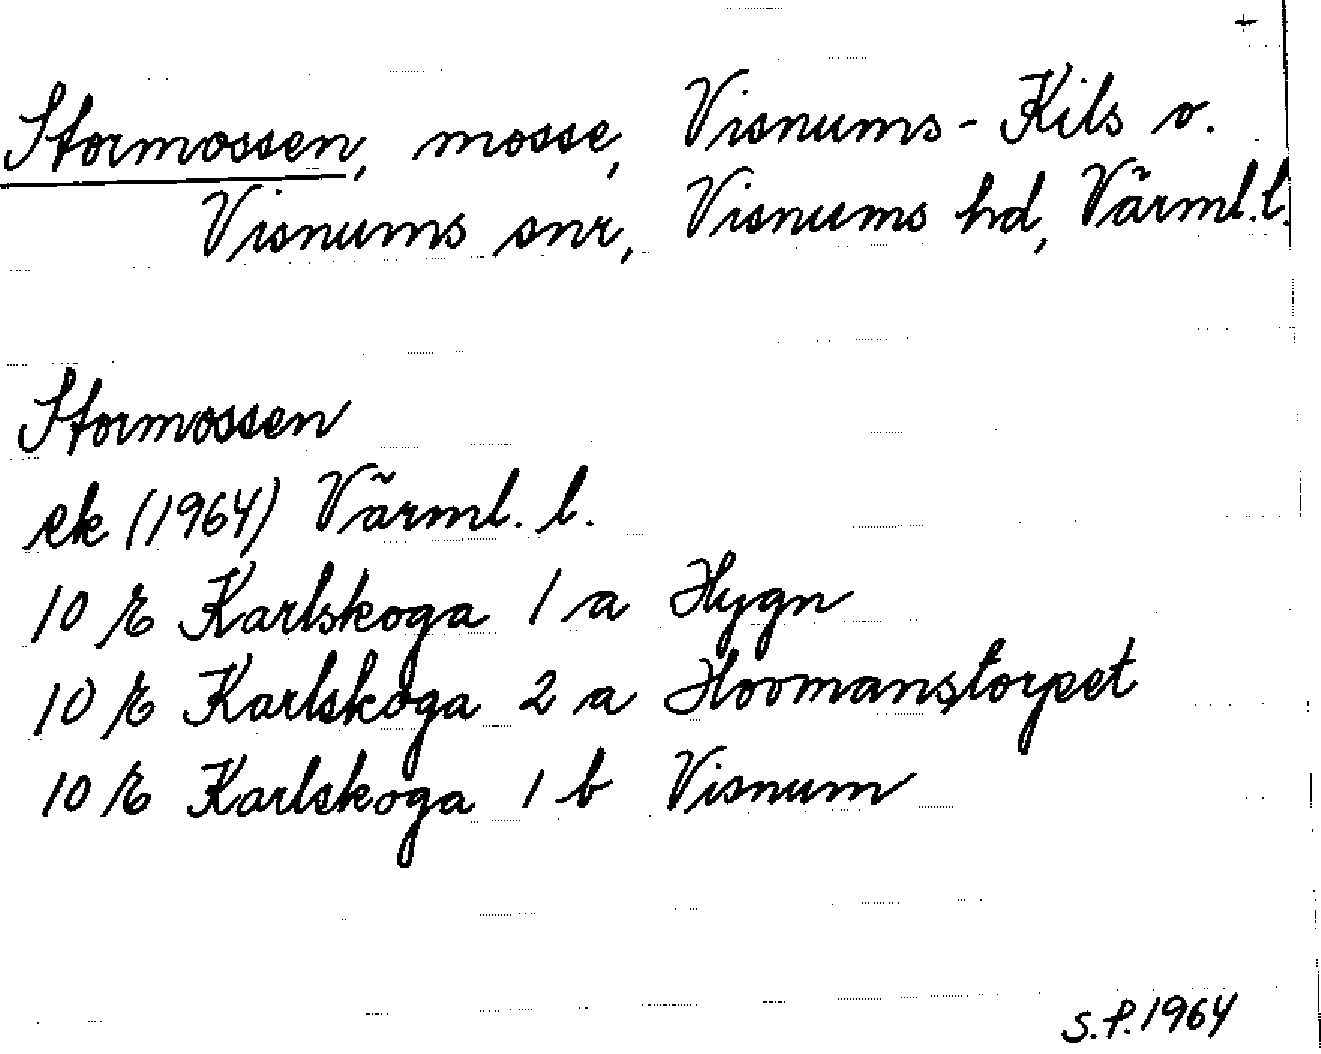 +
Stormossen, mosse, Visnums-Kils s.
Visnums snr, Visnums hd, Värml. l.
Stormossen
ek (1964) Värml. l.
10 E Karlskoga 1 a Hygn
10 E Karlskoga 2 a Hovmanstorpet
10 E Karlskoga 1 b Visnum
S.P. 1964